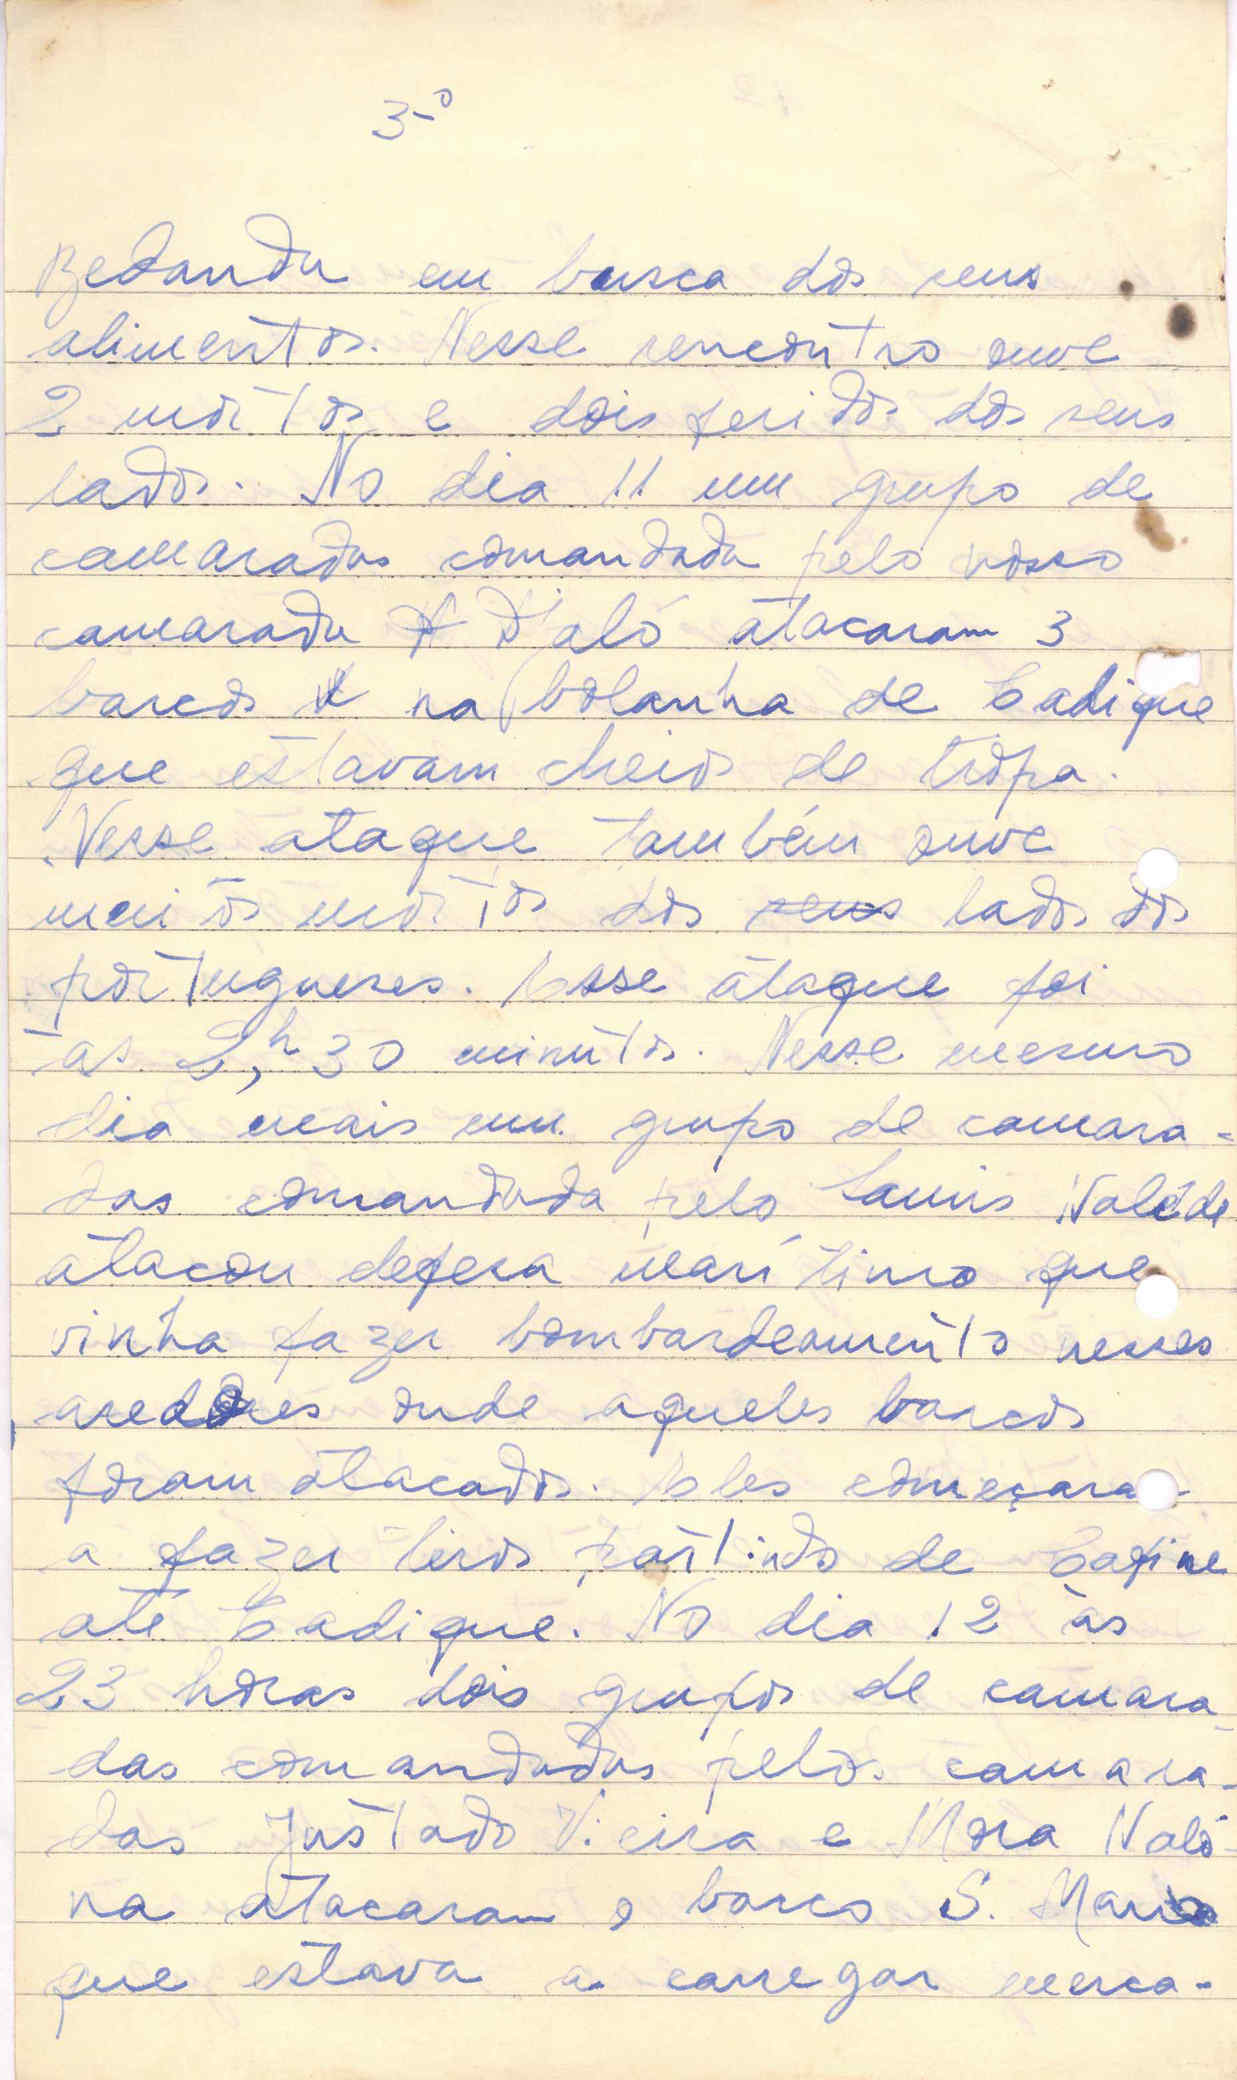 3º
Bedanda em busca dos seus
alimentos. Nesse rencontro ouve
2 mortos e dois feridos dos seus
lados. No dia 11 um grupo de
camaradas comandada pelo nosso
camarada D'jaló atacaram 3
barcos na bolanha de Cadique
que estavam cheios de tropa.
Nesse ataque também ouve
muitos mortos dos seus lados dos
portugueses. Esse ataque foi
às 2,h 30 minutos. Nesse mesmo
dia mais um grupo de camara-
das comandada pelo
atacou defesa marítimo que
vinha fazer bombardeamento nesses
aredores onde aqueles barcos
foram atacados. Eles começara
a fazer tiros partindo de Cafine
até Cadique. No dia 12 às
23 horas dois grupos de camara
das comandadas pelos camara-
das Justado Vieira e Mora Naló-
na atacaram o barco S. Maria
que estava a carregar merca-